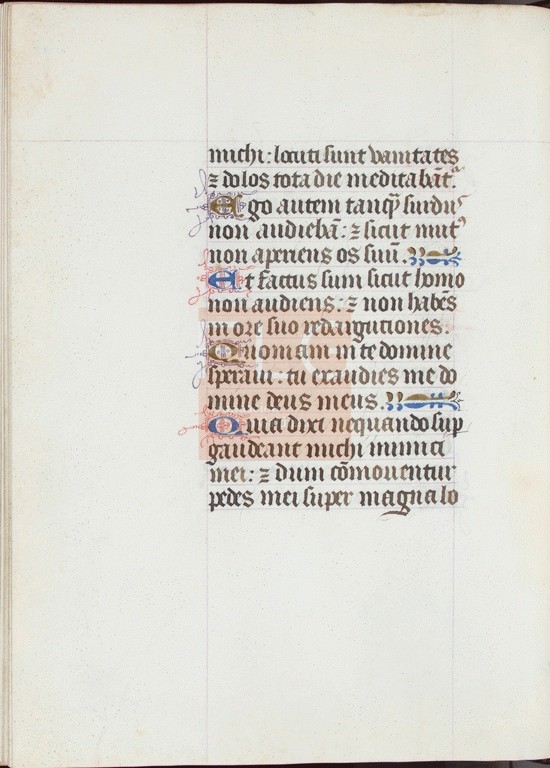 michi: locuti sunt vanitates
⁊ dolos tota die meditabāt.
Ego autem tanq̄ surdus
non audiebā: ⁊ sicut mutꝰ
non aperiens os suū.
Et factus sum sicut homo
non audiens: ⁊ non habēs
in ore suo redargutiones.
Quoniam in te domine
speravi: tu exaudies me do
mine deus meus.
Quia dixi nequando sup
gaudeant michi inimici
mei: ⁊ dum cōmoventur
pedes mei super magna lo